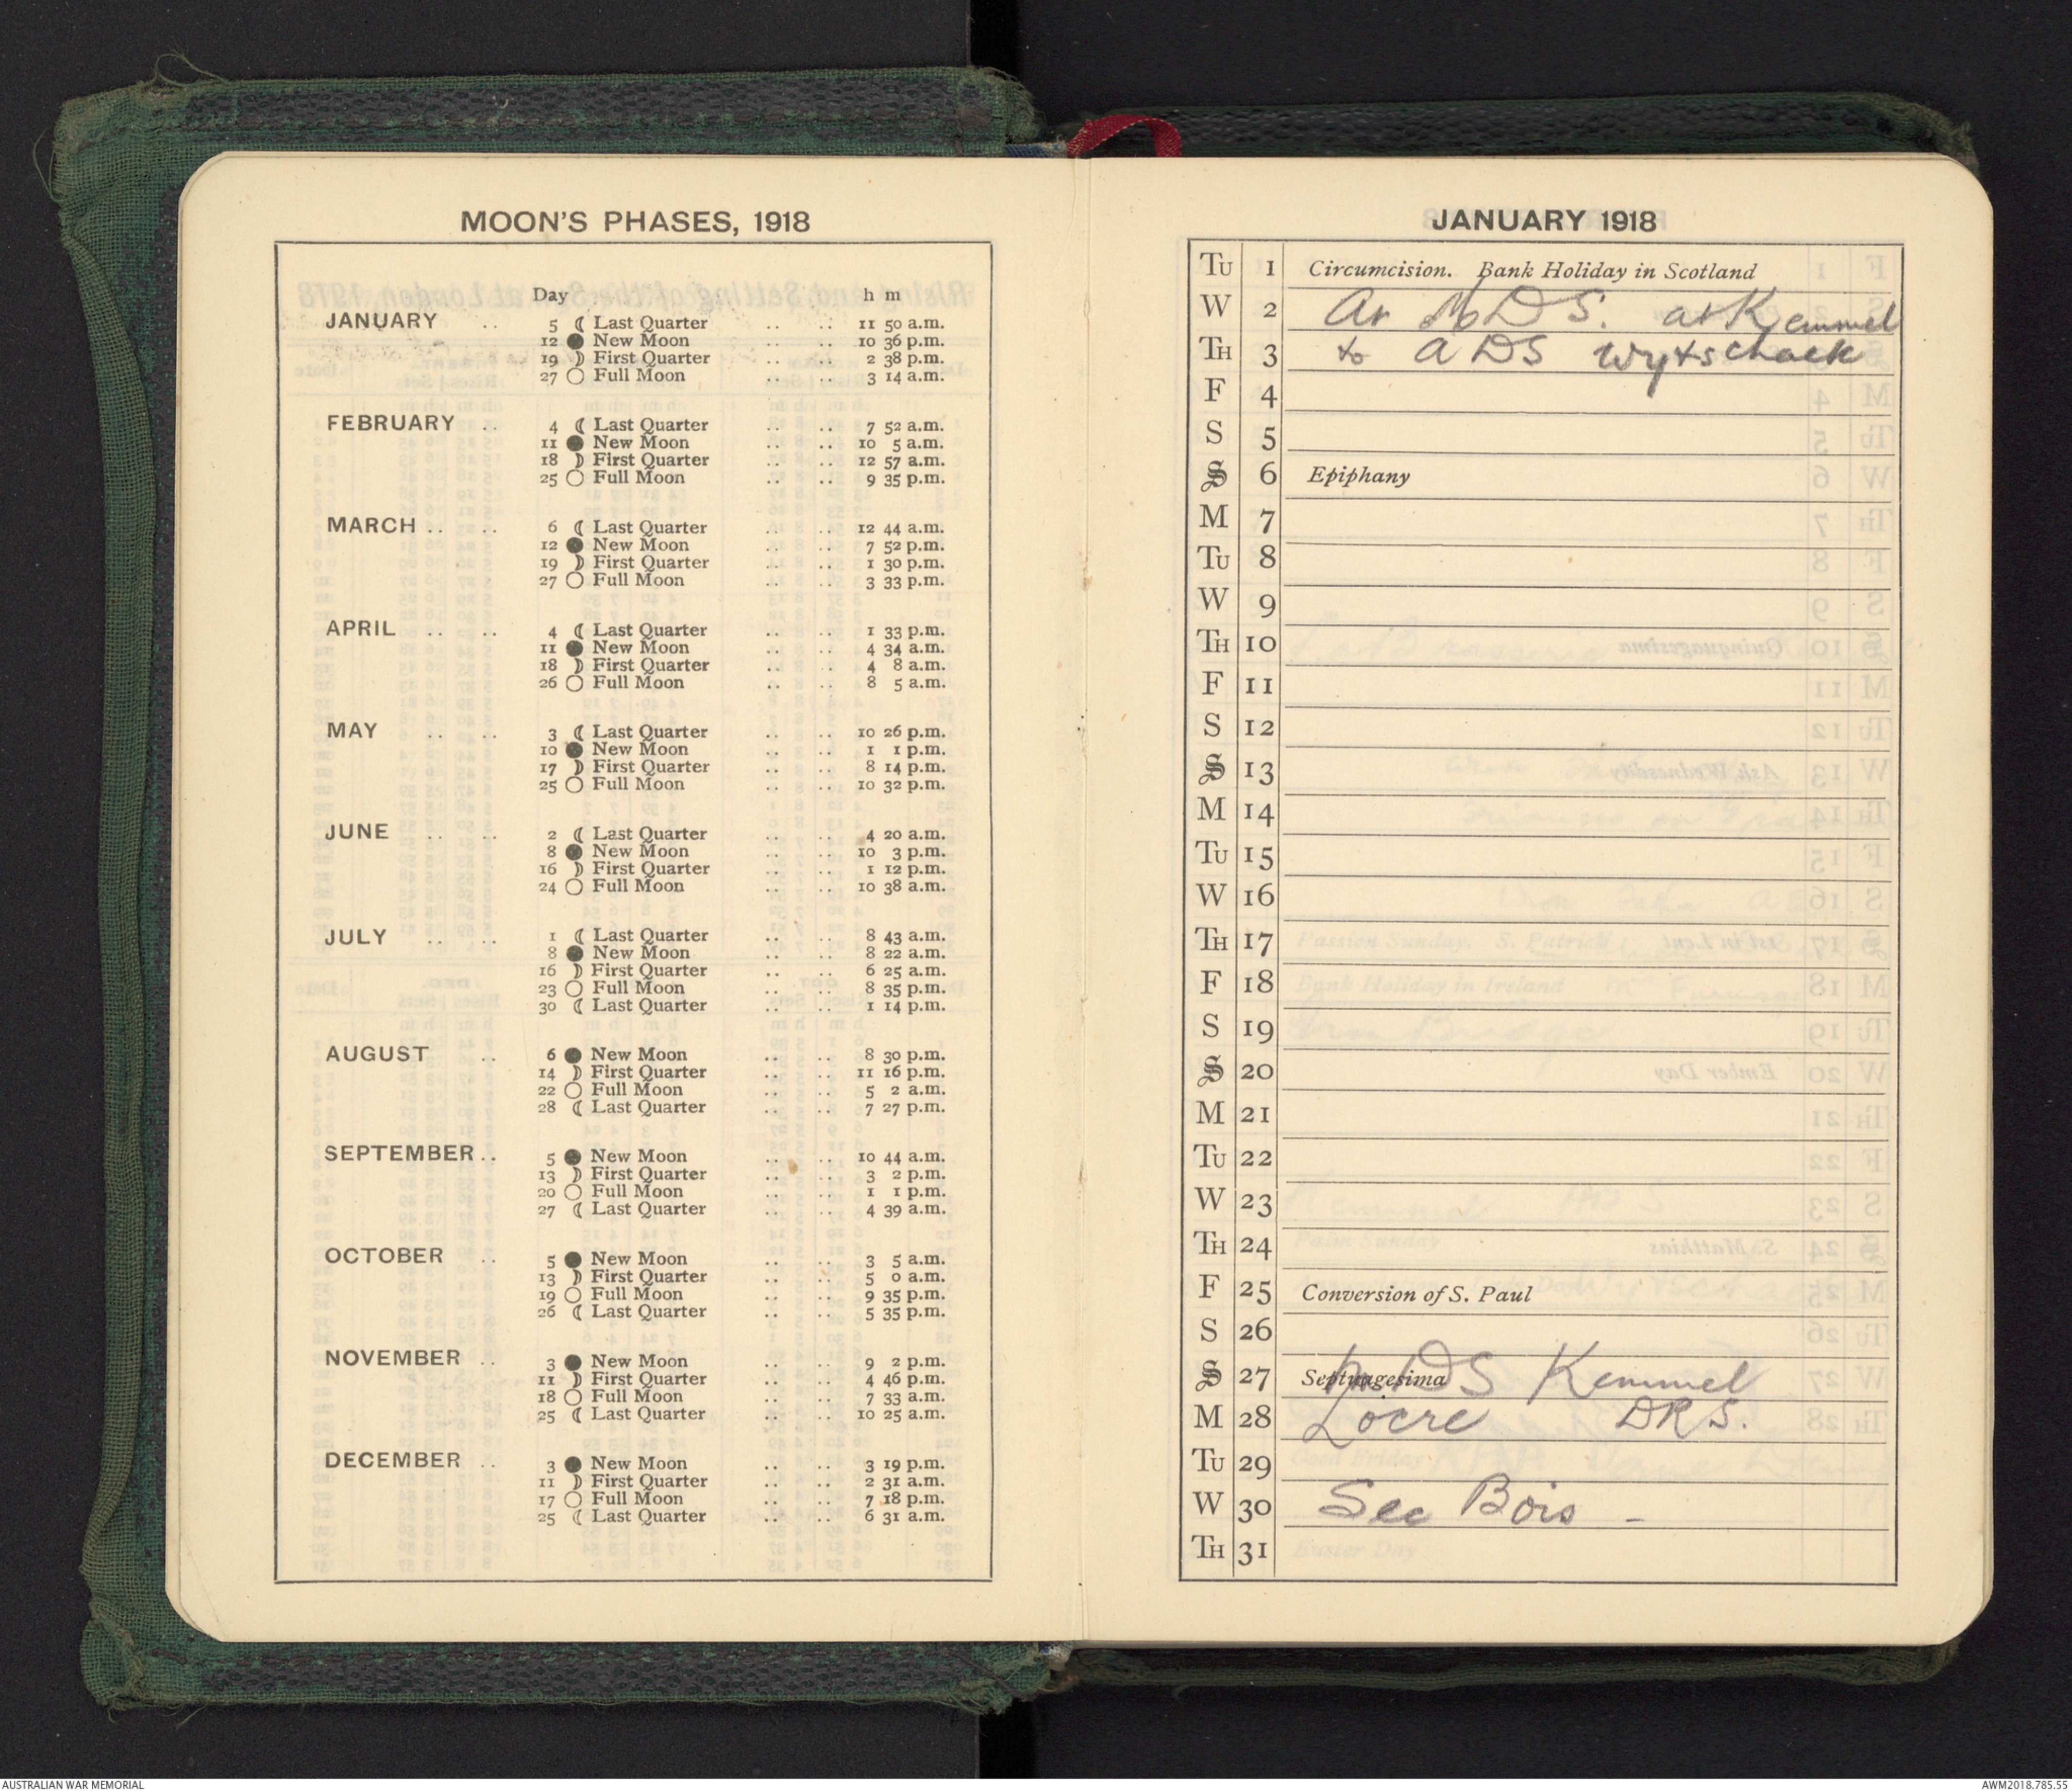 MOON'S PHASES, 1918
Day h m
JANUARY .. 5 ☾ Last Quarter .. .. 11 50 a.m.
12 ● New Moon .. .. 10 36 p.m.
19 ☽ First Quarter .. .. 2 38 p.m.
27 ○ Full Moon .. .. 3 14 a.m.
FEBRUARY .. 4 ☾ Last Quarter .. .. 7 52 a.m.
11 ● New Moon .. .. 10 5 a.m.
18 ☽ First Quarter .. .. 12 57 a.m.
25 ○ Full Moon .. .. 9 35 p.m.
MARCH .. .. 6 ☾ Last Quarter .. .. 12 44 a.m.
12 ● New Moon .. .. 7 52 p.m.
19 ☽ First Quarter .. .. 1 30 p.m.
27 ○ Full Moon .. .. 3 33 p.m.
APRIL .. .. 4 ☾ Last Quarter .. .. 1 33 p.m.
11 ● New Moon .. .. 4 34 a.m.
18 ☽ First Quarter .. .. 4 8 a.m.
26 ○ Full Moon .. .. 8 5 a.m.
MAY .. .. 3 ☾ Last Quarter .. .. 10 26 p.m.
10 ● New Moon .. .. 1 1 p.m.
17 ☽ First Quarter .. .. 8 14 p.m.
25 ○ Full Moon .. .. 10 32 p.m.
JUNE .. .. 2 ☾ Last Quarter .. .. 4 20 a.m.
8 ● New Moon .. .. 10 3 p.m.
16 ☽ First Quarter .. .. 1 12 p.m.
24 ○ Full Moon .. .. 10 38 a.m.
JULY .. .. 1 ☾ Last Quarter .. .. 8 43 a.m.
8 ● New Moon .. .. 8 22 a.m.
16 ☽ First Quarter .. .. 6 25 a.m.
23 ○ Full Moon .. .. 8 35 p.m.
30 ☾ Last Quarter .. .. 1 14 p.m.
AUGUST .. 6 ● New Moon .. .. 8 30 p.m.
14 ☽ First Quarter .. .. 11 16 p.m.
22 ○ Full Moon .. .. 5 2 a.m.
28 ☾ Last Quarter .. .. 7 27 p.m.
SEPTEMBER .. 5 ● New Moon .. .. 10 44 a.m.
13 ☽ First Quarter .. .. 3 2 p.m.
20 ○ Full Moon .. .. 1 1 p.m.
27 ☾ Last Quarter .. .. 4 39 a.m.
OCTOBER .. 5 ● New Moon .. .. 3 5 a.m.
13 ☽ First Quarter .. .. 5 0 a.m.
19 ○ Full Moon .. .. 9 35 p.m.
26 ☾ Last Quarter .. .. 5 35 p.m.
NOVEMBER .. 3 ● New Moon .. .. 9 2 p.m.
11 ☽ First Quarter .. .. 4 46 p.m.
18 ○ Full Moon .. .. 7 33 a.m.
25 ☾ Last Quarter .. .. 10 25 a.m.
DECEMBER .. 3 ● New Moon .. .. 3 19 p.m.
11 ☽ First Quarter .. .. 2 31 a.m.
17 ○ Full Moon .. .. 7 18 p.m.
25 ☾ Last Quarter .. .. 6 31 a.m.
JANUARY 1918
TU 1 Circumcision. Bank Holiday in Scotland
W 2 At MDS. at Kemmel
TH 3 to ADS Wytschaek
F 4
S 5
S 6 Epiphany
M 7
TU 8
W 9
TH 10
F 11
S 12
S 13
M 14
TU 15
W 16
TH 17
F 18
S 19
S 20
M 21
TU 22
W 23
TH 24
F 25 Conversion of S. Paul
S 26
S 27 Septuagesima MDS Kemmel
M 28 Locre DRS.
TU 29
W 30 Sec Bois -
TH 31
AUSTRALIAN WAR MEMORIAL
AWM2018.785.55